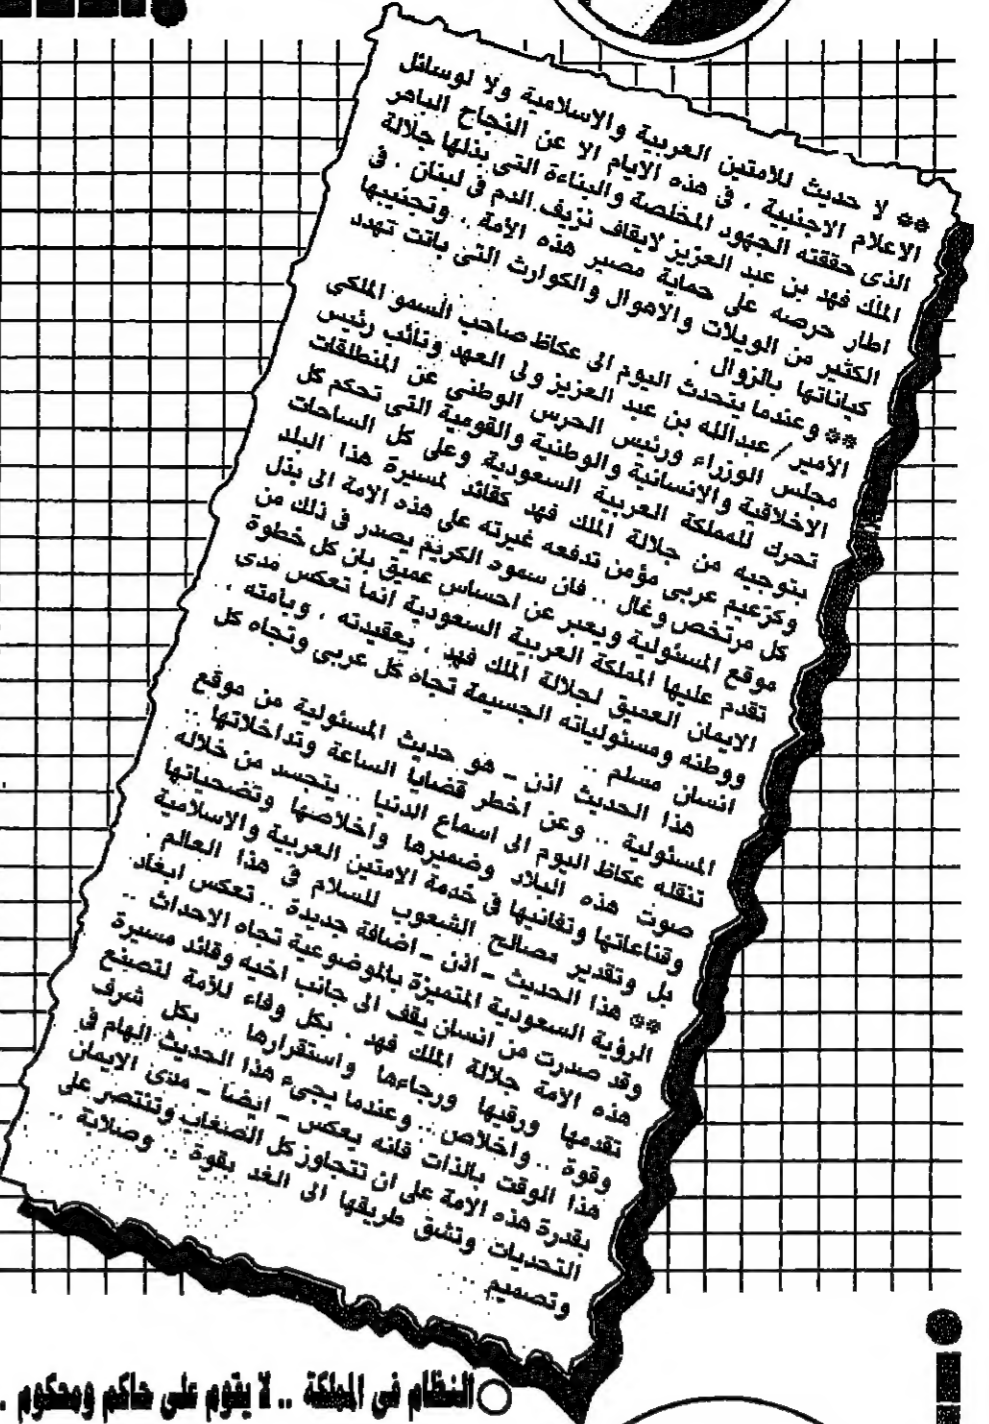 ** لا حديث للامتين العربية والاسلامية ولا لوسائل
الاعلام الاجنبية ، فى هذه الايام الا عن النجاح الباهر
الذى حققته الجهود المخلصة والبناءة التى بذلها جلالة
الملك فهد بن عبد العزيز لايقاف نزيف الدم فى لبنان ، فى
اطار حرصه على حماية مصير هذه الأمة .. وتجنيبها
الكثير من الويلات والاهوال والكوارث التى باتت تهدد
كياناتها بالزوال .
** وعندما يتحدث اليوم الى عكاظ صاحب السمو الملكى
الأمير / عبدالله بن عبد العزيز ولى العهد ونائب رئيس
مجلس الوزراء ورئيس الحرس الوطنى عن المنطلقات
الاخلاقية والانسانية والوطنية والقومية التى تحكم كل
تحرك للمملكة العربية السعودية وعلى كل الساحات
بتوجيه من جلالة الملك فهد كقائد لمسيرة هذا البلد
وكزعيم عربى مؤمن تدفعه غيرته على هذه الامة الى بذل
كل مرتخص وغال .. فان سموه الكريم يصدر فى ذلك من
موقع المسئولية ويعبر عن احساس عميق بان كل خطوة
تقدم عليها المملكة العربية السعودية انما تعكس مدى
الايمان العميق لجلالة الملك فهد ، بعقيدته ، وبامته ،
ووطنه ومسئولياته الجسيمة تجاه كل عربى وتجاه كل
انسان مسلم ..
هذا الحديث اذن - هو حديث المسئولية من موقع
المسئولية .. وعن اخطر قضايا الساعة وتداخلاتها ..
تنقله عكاظ اليوم الى اسماع الدنيا .. يتجسد من خلاله
صوت هذه البلاد وضميرها واخلاصها وتضحياتها
وقناعاتها وتفانيها فى خدمة الامتين العربية والاسلامية
بل وتقدير مصالح الشعوب للسلام فى هذا العالم .
** هذا الحديث - اذن - اضافة جديدة .. تعكس ابعاد
الرؤية السعودية المتميزة بالموضوعية تجاه الاحداث ..
وقد صدرت من انسان يقف الى جانب اخيه وقائد مسيرة
هذه الامة جلالة الملك فهد . بكل وفاء للأمة لتصنع
تقدمها ورقيها ورجاءها واستقرارها .. بكل شرف
وقوة .. واخلاص .. وعندما يجىء هذا الحديث الهام فى
هذا الوقت بالذات فانه يعكس - ايضا - مدى الايمان
بقدرة هذه الامة على ان تتجاوز كل الصعاب وتنتصر على
التحديات وتشق طريقها الى الغد بقوة .. وصلابة ..
وتصميم ..
النظام فى المملكة .. لا يقوم على حاكم ومحكوم .